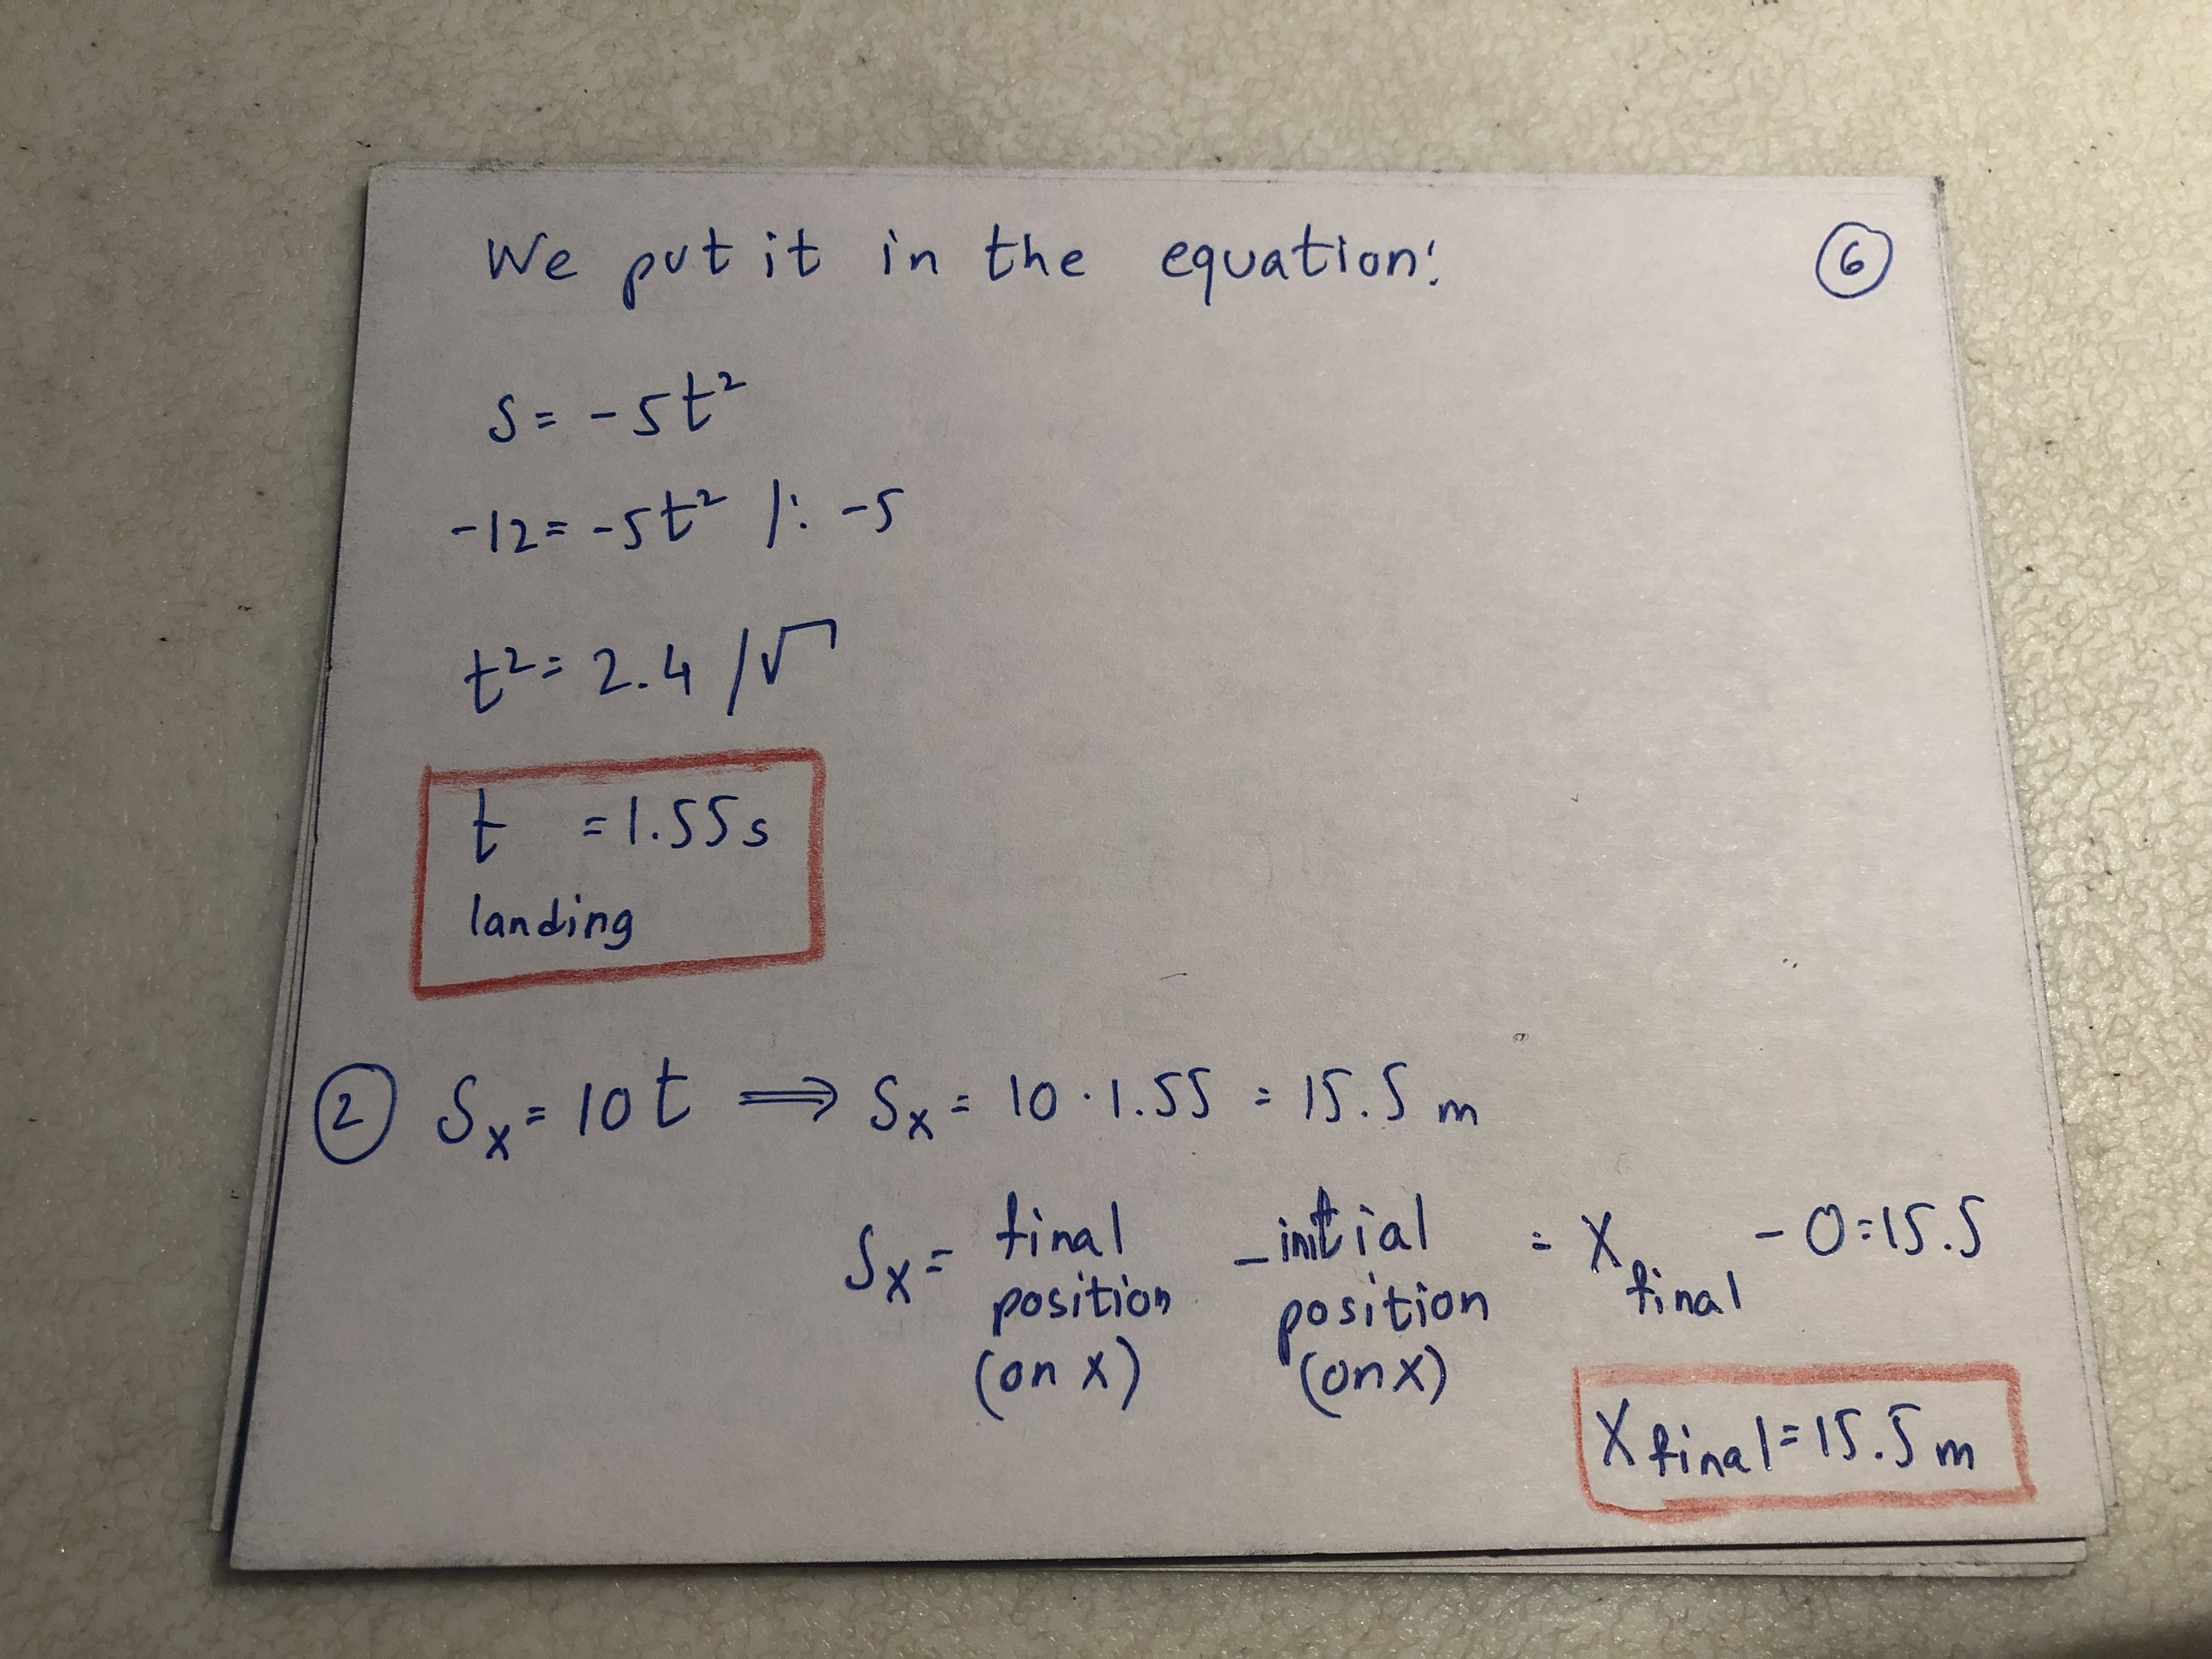 We put it in the equation:
6
s = -5t²
-12 = -5t² /: -5
t² = 2.4 /√
t = 1.55 s
landing
2 Sx = 10t ⟹ Sx = 10 · 1.55 = 15.5 m
Sx = final position (on x) - initial position (on x) = X final - 0 = 15.5
X final = 15.5 m